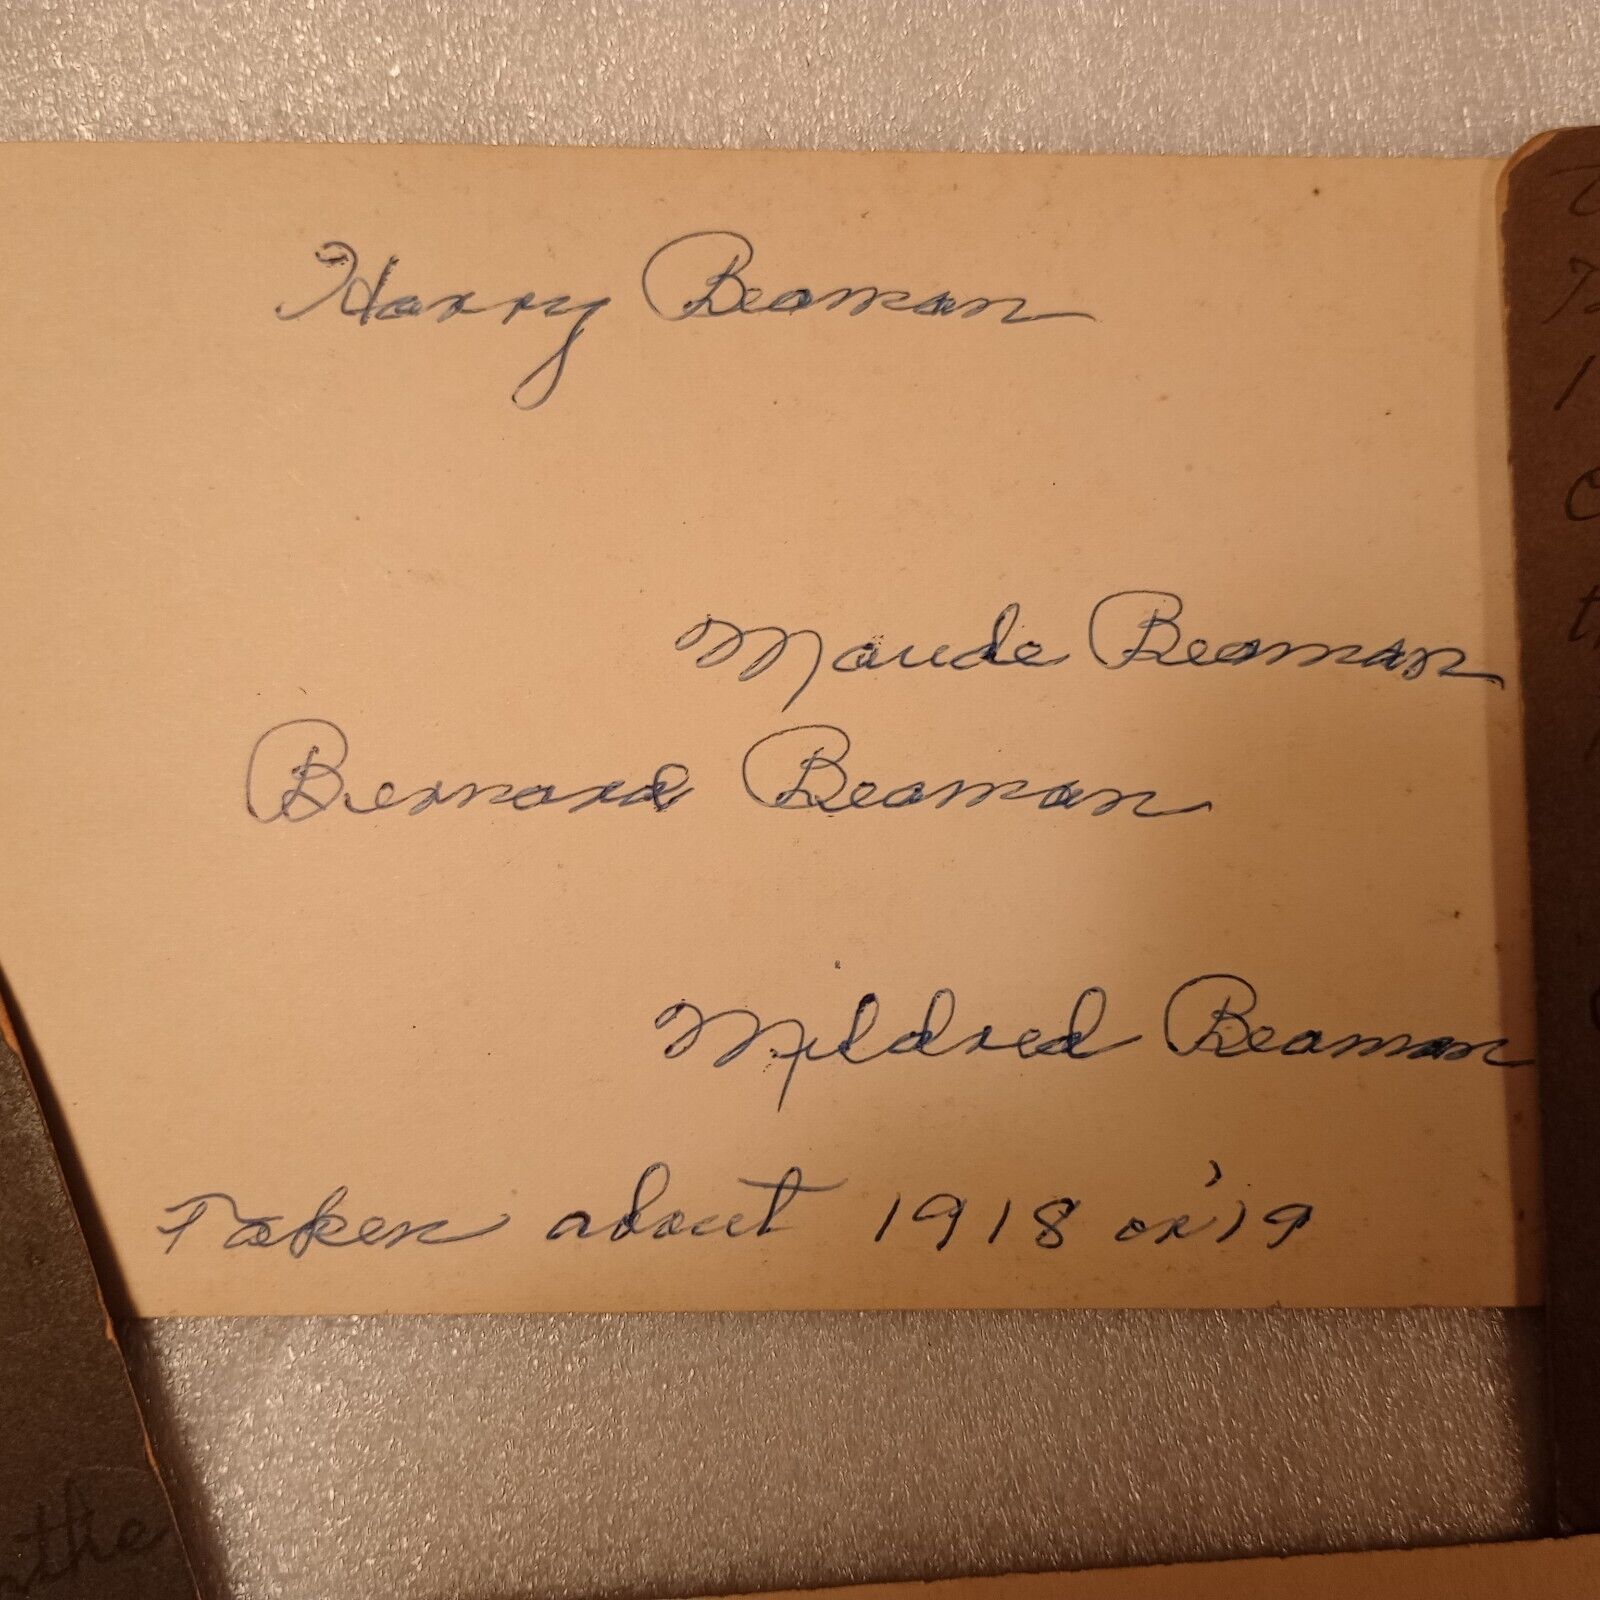 Harry Beaman
Maude Beaman
Bernard Beaman
Mildred Beaman
Taken about 1918 or '19
the